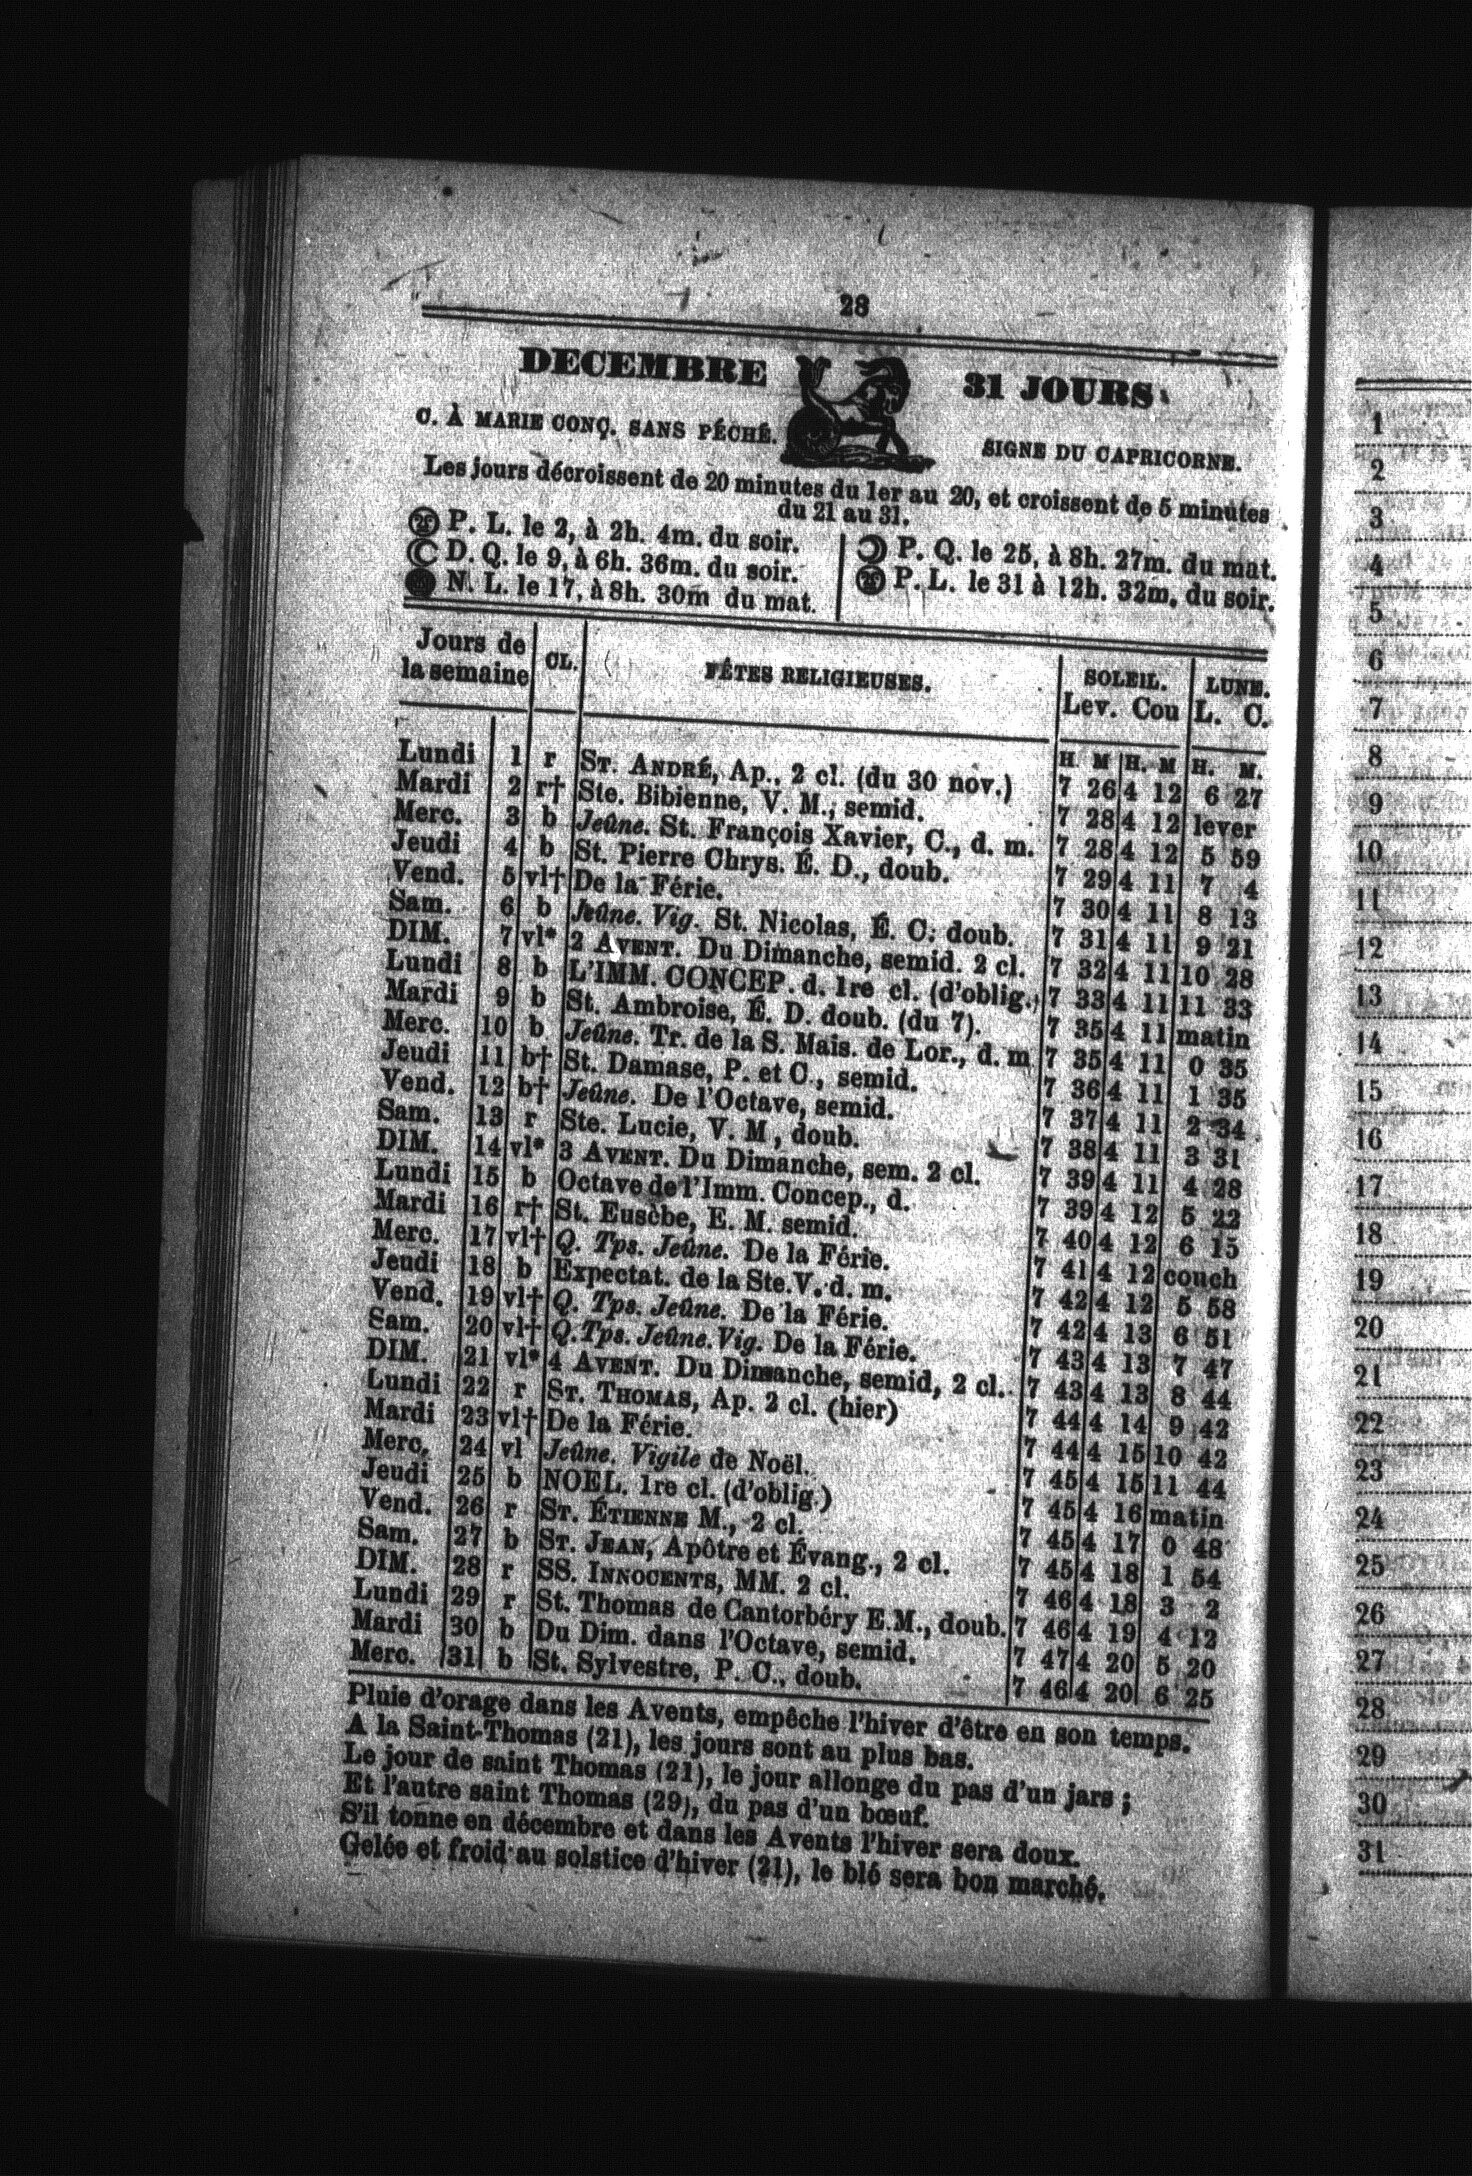 28
DECEMBRE 31 JOURS
C. À MARIE CONÇ. SANS PÉCHÉ. SIGNE DU CAPRICORNE.
Les jours décroissent de 20 minutes du 1er au 20, et croissent de 5 minutes
du 21 au 31.
P. L. le 2, à 2h. 4m. du soir.
D. Q. le 9, à 6h. 36m. du soir.
N. L. le 17, à 8h. 30m du mat.
P. Q. le 25, à 8h. 27m. du mat.
P. L. le 31 à 12h. 32m. du soir.
Jours de la semaine CL. FÊTES RELIGIEUSES. SOLEIL. LUNE.
Lev. Cou L. C.
H. M H. M H. M.
Lundi 1 r ST. ANDRÉ, Ap., 2 cl. (du 30 nov.) 7 26 4 12 6 27
Mardi 2 r† Ste. Bibienne, V. M., semid. 7 28 4 12 lever
Merc. 3 b Jeûne. St. François Xavier, C., d. m. 7 28 4 12 5 59
Jeudi 4 b St. Pierre Chrys. É. D., doub. 7 29 4 11 7 4
Vend. 5 vl† De la Férie. 7 30 4 11 8 13
Sam. 6 b Jeûne. Vig. St. Nicolas, É. C. doub. 7 31 4 11 9 21
DIM. 7 vl* 2 AVENT. Du Dimanche, semid. 2 cl. 7 32 4 11 10 28
Lundi 8 b L'IMM. CONCEP. d. 1re cl. (d'oblig.) 7 33 4 11 11 33
Mardi 9 b St. Ambroise, É. D. doub. (du 7). 7 35 4 11 matin
Merc. 10 b Jeûne. Tr. de la S. Mais. de Lor., d. m 7 35 4 11 0 35
Jeudi 11 b† St. Damase, P. et C., semid. 7 36 4 11 1 35
Vend. 12 b† Jeûne. De l'Octave, semid. 7 37 4 11 2 34
Sam. 13 r Ste. Lucie, V. M, doub. 7 38 4 11 3 31
DIM. 14 vl* 3 AVENT. Du Dimanche, sem. 2 cl. 7 39 4 11 4 28
Lundi 15 b Octave de l'Imm. Concep., d. 7 39 4 12 5 22
Mardi 16 r† St. Eusèbe, E. M. semid. 7 40 4 12 6 15
Merc. 17 vl† Q. Tps. Jeûne. De la Férie. 7 41 4 12 couch
Jeudi 18 b Expectat. de la Ste. V. d. m. 7 42 4 12 5 58
Vend. 19 vl† Q. Tps. Jeûne. De la Férie. 7 42 4 13 6 51
Sam. 20 vl† Q. Tps. Jeûne. Vig. De la Férie. 7 43 4 13 7 47
DIM. 21 vl* 4 AVENT. Du Dimanche, semid, 2 cl. 7 43 4 13 8 44
Lundi 22 r ST. THOMAS, Ap. 2 cl. (hier) 7 44 4 14 9 42
Mardi 23 vl† De la Férie. 7 44 4 15 10 42
Merc. 24 vl Jeûne. Vigile de Noël. 7 45 4 15 11 44
Jeudi 25 b NOEL. 1re cl. (d'oblig.) 7 45 4 16 matin
Vend. 26 r ST. ÉTIENNE M., 2 cl. 7 45 4 17 0 48
Sam. 27 b ST. JEAN, Apôtre et Évang., 2 cl. 7 45 4 18 1 54
DIM. 28 r SS. INNOCENTS, MM. 2 cl. 7 46 4 18 3 2
Lundi 29 r St. Thomas de Cantorbéry E.M., doub. 7 46 4 19 4 12
Mardi 30 b Du Dim. dans l'Octave, semid. 7 47 4 20 5 20
Merc. 31 b St. Sylvestre, P. C., doub. 7 46 4 20 6 25
Pluie d'orage dans les Avents, empêche l'hiver d'être en son temps.
A la Saint-Thomas (21), les jours sont au plus bas.
Le jour de saint Thomas (21), le jour allonge du pas d'un jars ;
Et l'autre saint Thomas (29), du pas d'un bœuf.
S'il tonne en décembre et dans les Avents l'hiver sera doux.
Gelée et froid au solstice d'hiver (21), le blé sera bon marché.
1
2
3
4
5
6
7
8
9
10
11
12
13
14
15
16
17
18
19
20
21
22
23
24
25
26
27
28
29
30
31